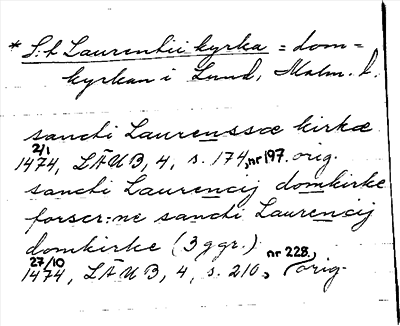 * S:t Laurentii kyrka = dom=
kyrkan i Lund, Malm. l.
sancti Laurenssæ kirkæ
2/1 1474, LÄUB, 4, s. 174, nr 197. orig.
sancti Laurencij domkirke
forscr:ne sancti Laurencij
domkirke (3 ggr.)
27/10 1474, LÄUB, 4, s. 210, nr 228, orig.